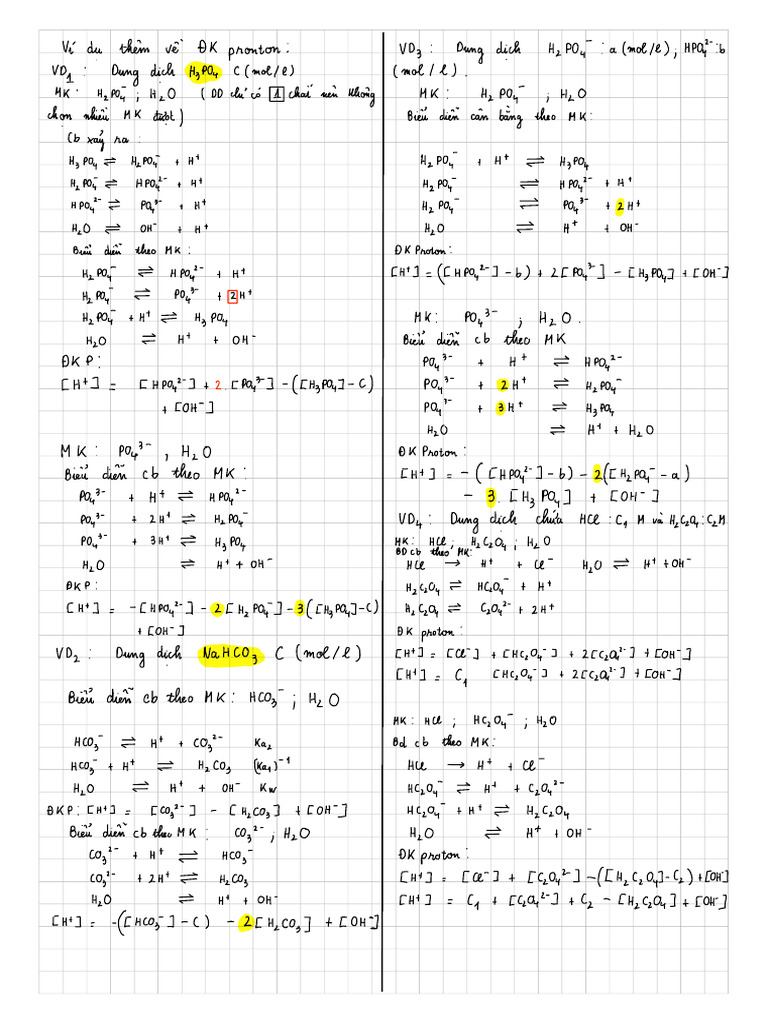 Ví dụ thêm về ĐK pronton:
VD1: Dung dịch H3PO4 C (mol/l)
MK: H2PO4^- ; H2O (DD chỉ có 1 chất nên không
chọn nhiều MK được)
Cb xảy ra:
H3PO4 ⇌ H2PO4^- + H^+
H2PO4^- ⇌ HPO4^2- + H^+
HPO4^2- ⇌ PO4^3- + H^+
H2O ⇌ OH^- + H^+
Biểu diễn theo MK:
H2PO4^- ⇌ HPO4^2- + H^+
H2PO4^- ⇌ PO4^3- + 2H^+
H2PO4^- + H^+ ⇌ H3PO4
H2O ⇌ H^+ + OH^-
ĐKP:
[H^+] = [HPO4^2-] + 2.[PO4^3-] - ([H3PO4] - C)
+ [OH^-]
MK: PO4^3- , H2O
Biểu diễn cb theo MK:
PO4^3- + H^+ ⇌ HPO4^2-
PO4^3- + 2H^+ ⇌ H2PO4^-
PO4^3- + 3H^+ ⇌ H3PO4
H2O ⇌ H^+ + OH^-
ĐKP:
[H^+] = -[HPO4^2-] - 2[H2PO4^-] - 3([H3PO4] - C)
+ [OH^-]
VD2: Dung dịch NaHCO3 C (mol/l)
Biểu diễn cb theo MK: HCO3^- ; H2O
HCO3^- ⇌ H^+ + CO3^2- Ka2
HCO3^- + H^+ ⇌ H2CO3 (Ka1)^-1
H2O ⇌ H^+ + OH^- Kw
ĐKP: [H^+] = [CO3^2-] - [H2CO3] + [OH^-]
Biểu diễn cb theo MK: CO3^2- ; H2O
CO3^2- + H^+ ⇌ HCO3^-
CO3^2- + 2H^+ ⇌ H2CO3
H2O ⇌ H^+ + OH^-
[H^+] = -([HCO3^-] - C) - 2[H2CO3] + [OH^-]
VD3: Dung dịch H2PO4^- : a (mol/l) ; HPO4^2- : b
(mol/l).
MK: H2PO4^- ; H2O
Biểu diễn cân bằng theo MK:
H2PO4^- + H^+ ⇌ H3PO4
H2PO4^- ⇌ HPO4^2- + H^+
H2PO4^- ⇌ PO4^3- + 2H^+
H2O ⇌ H^+ + OH^-
ĐK Proton:
[H^+] = ([HPO4^2-] - b) + 2[PO4^3-] - [H3PO4] + [OH^-]
MK: PO4^3- ; H2O.
Biểu diễn cb theo MK
PO4^3- + H^+ ⇌ HPO4^2-
PO4^3- + 2H^+ ⇌ H2PO4^-
PO4^3- + 3H^+ ⇌ H3PO4
H2O ⇌ H^+ + H2O
ĐK Proton:
[H^+] = -([HPO4^2-] - b) - 2([H2PO4^- - a)
- 3.[H3PO4] + [OH^-]
VD4: Dung dịch chứa HCl : C1 M và H2C2O4 : C2M
MK: HCl ; H2C2O4 ; H2O
BD cb theo MK:
HCl → H^+ + Cl^- H2O ⇌ H^+ + OH^-
H2C2O4 ⇌ HC2O4^- + H^+
H2C2O4 ⇌ C2O4^2- + 2H^+
ĐK proton:
[H^+] = [Cl^-] + [HC2O4^-] + 2[C2O4^2-] + [OH^-]
[H^+] = C1 [HC2O4^-] + 2[C2O4^2-] + [OH^-]
MK: HCl ; HC2O4^- ; H2O
Bd cb theo MK:
HCl → H^+ + Cl^-
HC2O4^- ⇌ H^+ + C2O4^2-
HC2O4^- + H^+ ⇌ H2C2O4
H2O ⇌ H^+ + OH^-
ĐK proton:
[H^+] = [Cl^-] + [C2O4^2-] - ([H2C2O4] - C2) + [OH^-]
[H^+] = C1 + [C2O4^2-] + C2 - [H2C2O4] + [OH^-]